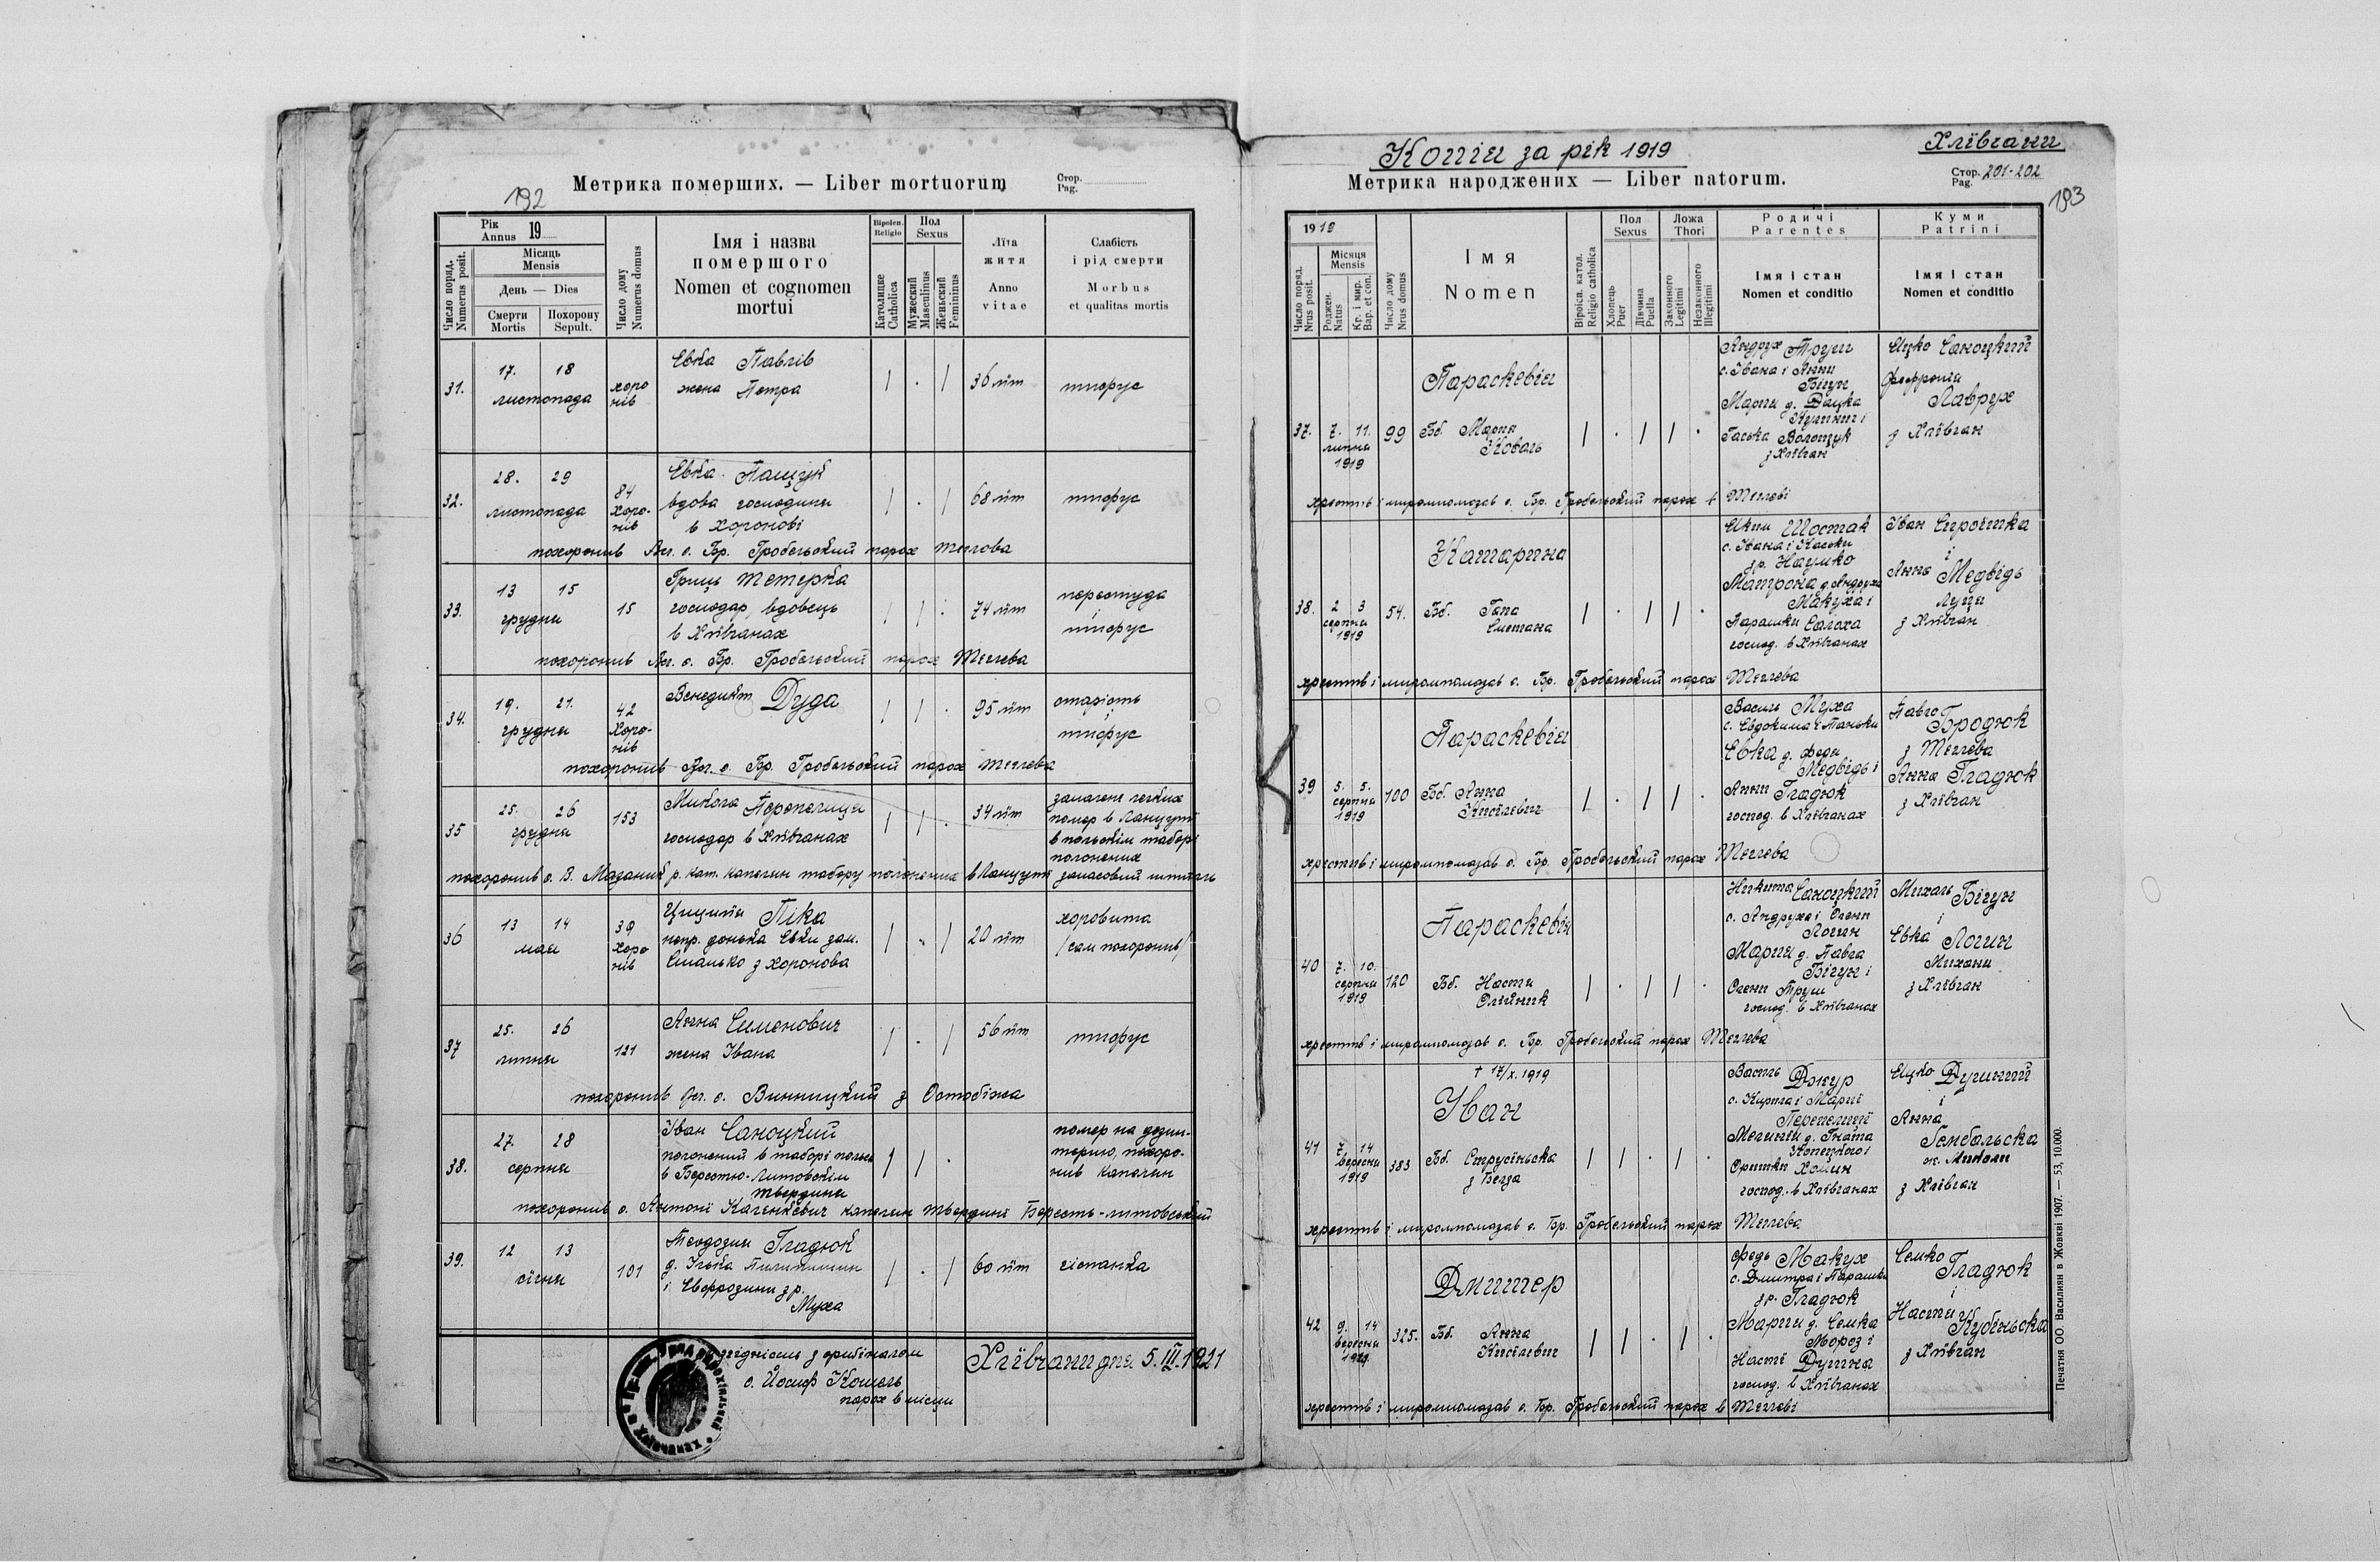 192
Метрика померших. — Liber mortuorum
Стор.
Pag.
Рік
Annus 19
Число поряд.
Numerus posit.
Місяць
Mensis
День — Dies
Смерти
Mortis
Похорону
Sepult.
Число дому
Numerus domus
Імя і назва
помершого
Nomen et cognomen
mortui
Віроісп.
Religio
Католицке
Catholica
Пол
Sexus
Мужеский
Masculinus
Женьский
Femininus
Лїта
житя
Anno
vitae
Слабість
і рід смерти
Morbus
et qualitas mortis
31.
17. 18
листопада
хоро
нів
Євка Павлів
жена Петра
36 літ
тифус
32.
28. 29
листопада
84
Хоро-
нів
Євка Пащук
вдова господиня
в Хоронові
68 літ
тифус
похоронив о. Гр. Гробельский парох Теглова
33.
13 15
грудня
15
Гриць Тетерка
господар, вдовець
в Хлївчанах
74 літ
перестуда
і
тифус
похоронив о. Гр. Гробельский парох Теглева
34.
19. 21.
грудня
42
Хоро-
нів
Венедикт Дуда
95 літ
старість
і
тифус
похоронив о. Гр. Гробельский парох Теглева
35
25. 26
грудня
153
Микола Перепелиця
господар в Хлївчанах
34 літ
запаленє легких
помер в Ланцутї
в польскім таборі
полонених
похоронив о. В. Мазаник р. кат. капелян табору полонених в Ланцутї запасовий шпиталь
36
13 14
мая
39
хоро
нів
Цицилїя Піка
непр. донька Євки зам.
Сманько з Хоронова
20 літ
хоровита
/сам похоронив/
37
25. 26
липня
121
Анна Сименович
жена Івана
56 літ
тифус
похоронив о. Винницкий з Остобіжа
38.
27. 28
серпня
Іван Саноцкий
полонений в таборі польск
в Берестю-Литовскім
твердиня
помер на дезин-
терию, похоро-
нив капелян
похоронив о. Антонї Каленкевич капелян твердинї Бересть-литовський
39.
12 13
сїчня
101
Теодозия Гладюк
д. Ілька Пилипишин
і Євфрозини з р.
Муха
60 літ
гіспанка
згідність з оригіналом
о. Йосиф Кошель
парох в місци
Хлївчани дня 5.III.1921
Копія за рік 1919
Хлївчани
Метрика народжених — Liber natorum.
Стор.
Pag. 201-202
193
1919
Число поряд.
Nrus posit.
Місяця
Mensis
Роджен.
Natus
Кр. і мир.
Bap. et con.
Число дому
Nrus domus
Імя
Nomen
Віроісп. катол.
Religio catholica
Пол
Sexus
Хлопець
Puer
Дївчина
Puella
Ложа
Thori
Законного
Legitimi
Незаконного
Illegitimi
Родичі
Parentes
Імя і стан
Nomen et conditio
Куми
Patrini
Імя і стан
Nomen et conditio
37.
7. 11.
липня
1919
99
Параскевія
Бб. Мария
Коваль
Андрух Труш
с. Івана і Анни
Бігун
Мария д. Дацка
Кулинич і
Гаська Волощук
з Хлївчан
Яцко Саноцкий
Фефронія
Лаврух
з Хлївчан
хрестив і миропомазав о. Гр. Гробельский парох в Теглеві
38.
2 3
серпня
1919
54.
Катарина
Бб. Гапа
Сметана
Шостак
с. Івана і Каськи
з р. Наумко
Матрона д. Андруха
Макуха і
Парашки Салоха
господ. в Хлївчанах
Іван Сироїжка
і
Анна Медвідь
Луци
з Хлївчан
хрестив і миропомазав о. Гр. Гробельский парох Теглева
39
5. 5.
серпня
1919
100
Параскевія
Бб. Анна
Киселевич
Василь Муха
с. Євдокима і Паньки
Євка д. Федя
Медвідь і
Анни Гладюк
господ. в Хлївчанах
Павло Бродюк
з Теглева
Анна Гладюк
з Хлївчан
хрестив і миропомазав о. Гр. Гробельский парох Теглева
40
7. 10.
серпня
1919
120
Параскевія
Бб. Настя
Олїйник
Никита Саноцкий
с. Андруха і Олени
Логин
Мария д. Павла
Бігун і
Олени Труш
господ. в Хлївчанах
Михаль Бігун
і
Євка Логин
з Хлївчан
хрестив і миропомазав о. Гр. Гробельский парох Теглева
41
7. 14
вересня
1919
383
† 17/X. 1919
Іван
Бб. Струсїньска
з Белза
Василь Джур
с. Кирила і Мариї
Перепелиці
д. Гната
Копецкого і
Оришки Хомин
господ. в Хлївчанах
Яцко Дучиний
і
Анна
ж. Миколи
з Хлївчан
хрестив і миропомазав о. Гр. Гробельский парох Теглева
42
9. 14
вересня
325.
Дмитер
Бб. Анна
Киселевич
Федь Макух
с. Дмитра і Парашки
з р. Гладюк
Мария д. Семка
Мороз і
Настї Душна
господ. в Хлївчанах
Семко Гладюк
і
Настя
Кубіньска
з Хлївчан
хрестив і миропомазав о. Гр. Гробельский парох в Теглеві
Печатня ОО. Василиян в Жовкві 1907. — 53, 10.000.